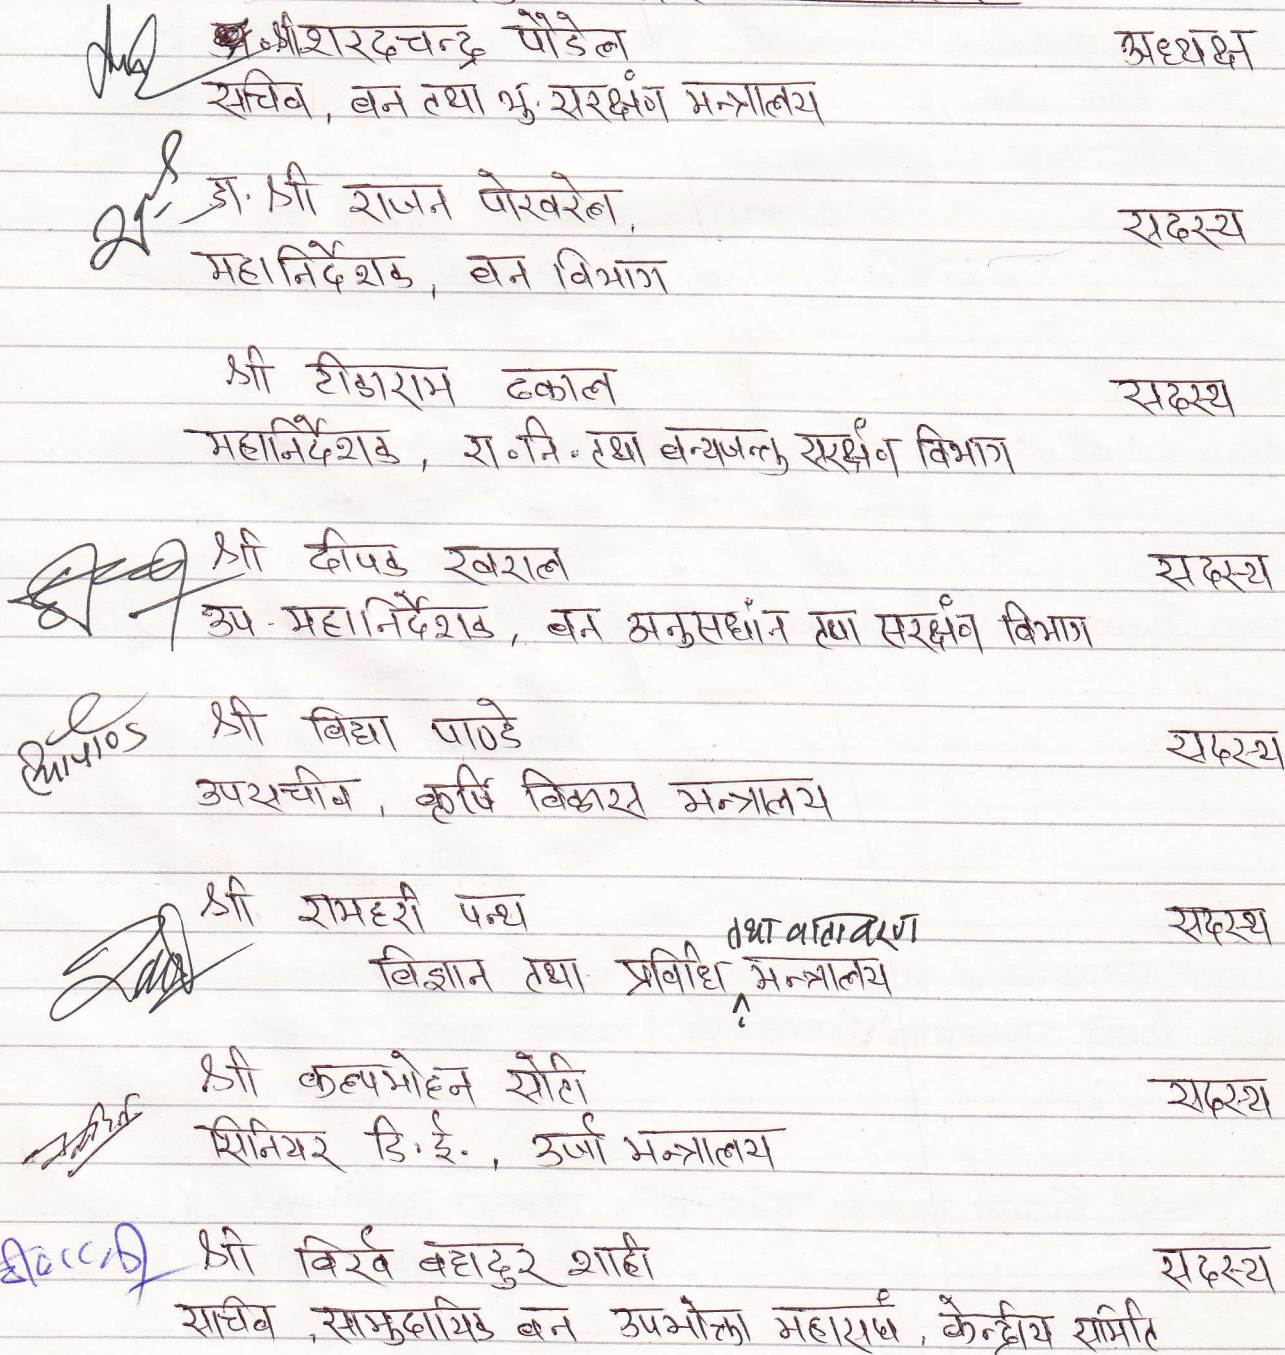 श्री शरदचन्द्र पौडेल अध्यक्ष
सचिव, वन तथा भु. संरक्षण मन्त्रालय
डा. श्री राजन पोखरेल, सदस्य
महानिर्देशक, वन विभाग
श्री टीकाराम ढकाल सदस्य
महानिर्देशक, रा.नि. तथा वन्यजन्तु सरक्षंण विभाग
श्री दीपक खराल सदस्य
उप-महानिर्देशक, वन अनुसधांन तथा सरक्षंण विभाग
श्री विद्या पाण्डे सदस्य
उपसचीव, कृर्षि विकास मन्त्रालय
श्री रामहरी पन्थ सदस्य
तथा वातावरण
विज्ञान तथा प्रविधि मन्त्रालय
श्री कल्पमोहन सदस्य
सिनियर डि.ई., उर्जा मन्त्रालय
श्री विर्ख बहादुर शाही सदस्य
सचिव, सामुदायिक वन उपभोक्ता महासघं, केन्द्रीय समिति